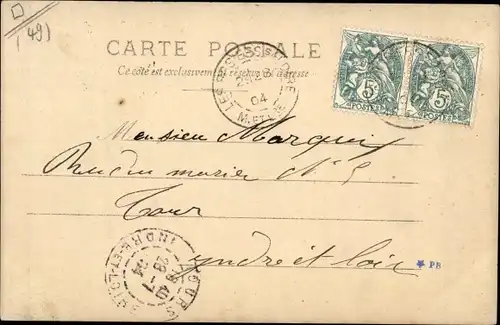 (49)
CARTE POSTALE
Ce côté est exclusivement réservé à l'adresse
5c 5c
POSTES POSTES
04
M.ET L.
Monsieur Marquis
Rue du murier N° 5
Tour
Yndre et loir
TOURS
INDRE-ET-LOIRE
28 -7
04
* PB